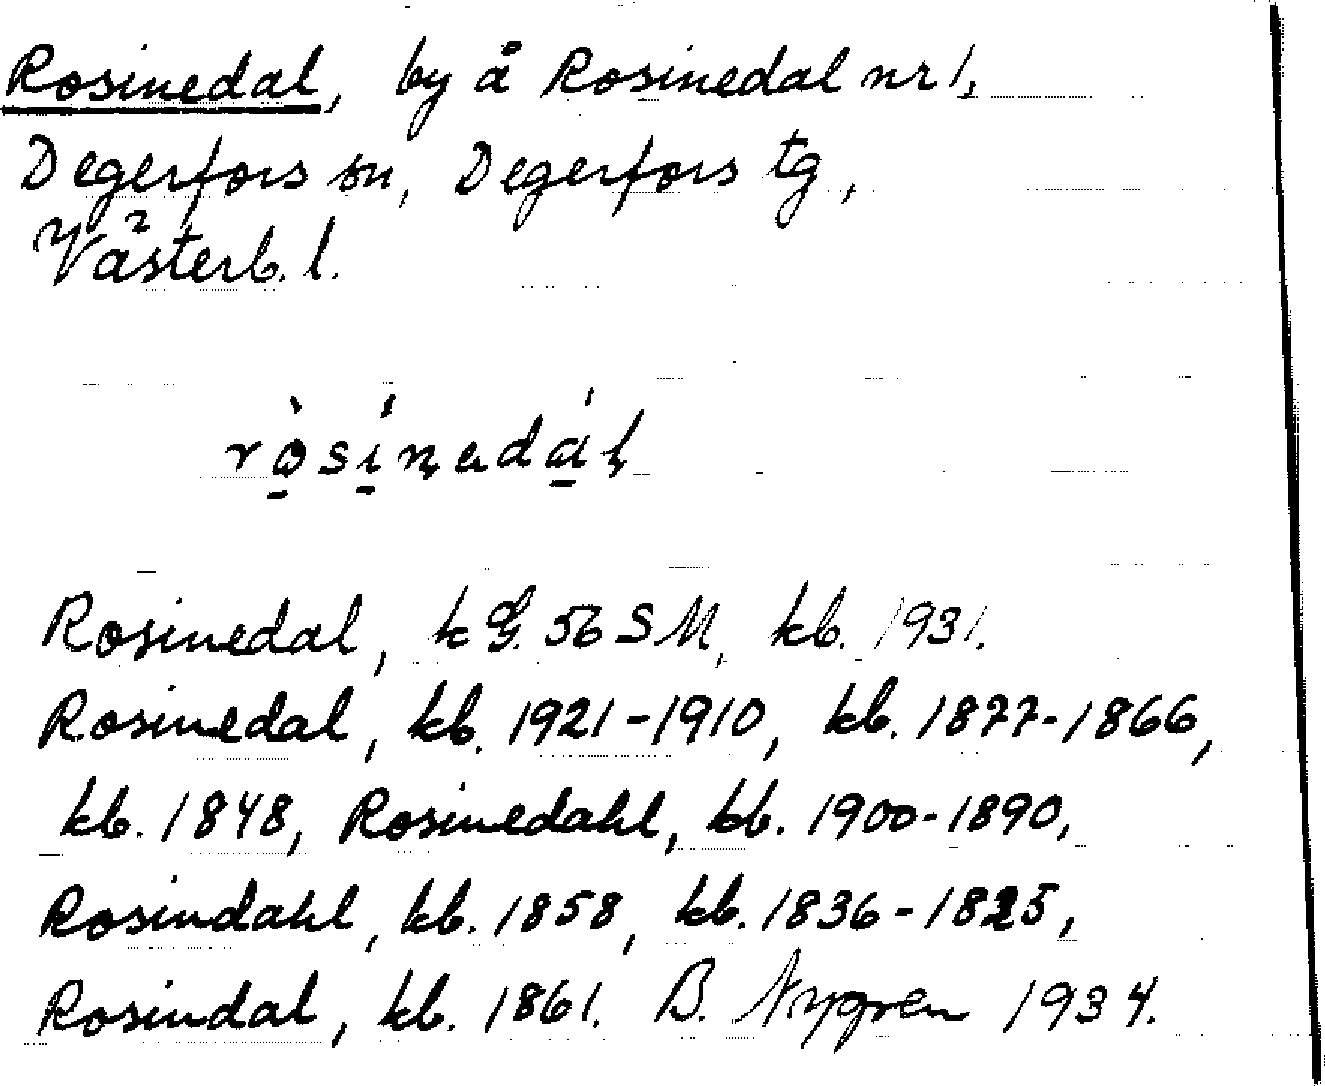 Rosinedal, by å Rosinedal nr 1,
Degerfors sn, Degerfors tg,
Västerb. l.
Rosinedal, k G. 56 SM, kb. 1931.
Rosinedal, kb. 1921-1910, kb. 1877-1866,
kb. 1848, Rosinedahl, kb. 1900-1890,
Rosindahl, kb. 1858, kb. 1836-1825,
Rosindal, kb. 1861. B. Nygren 1934.